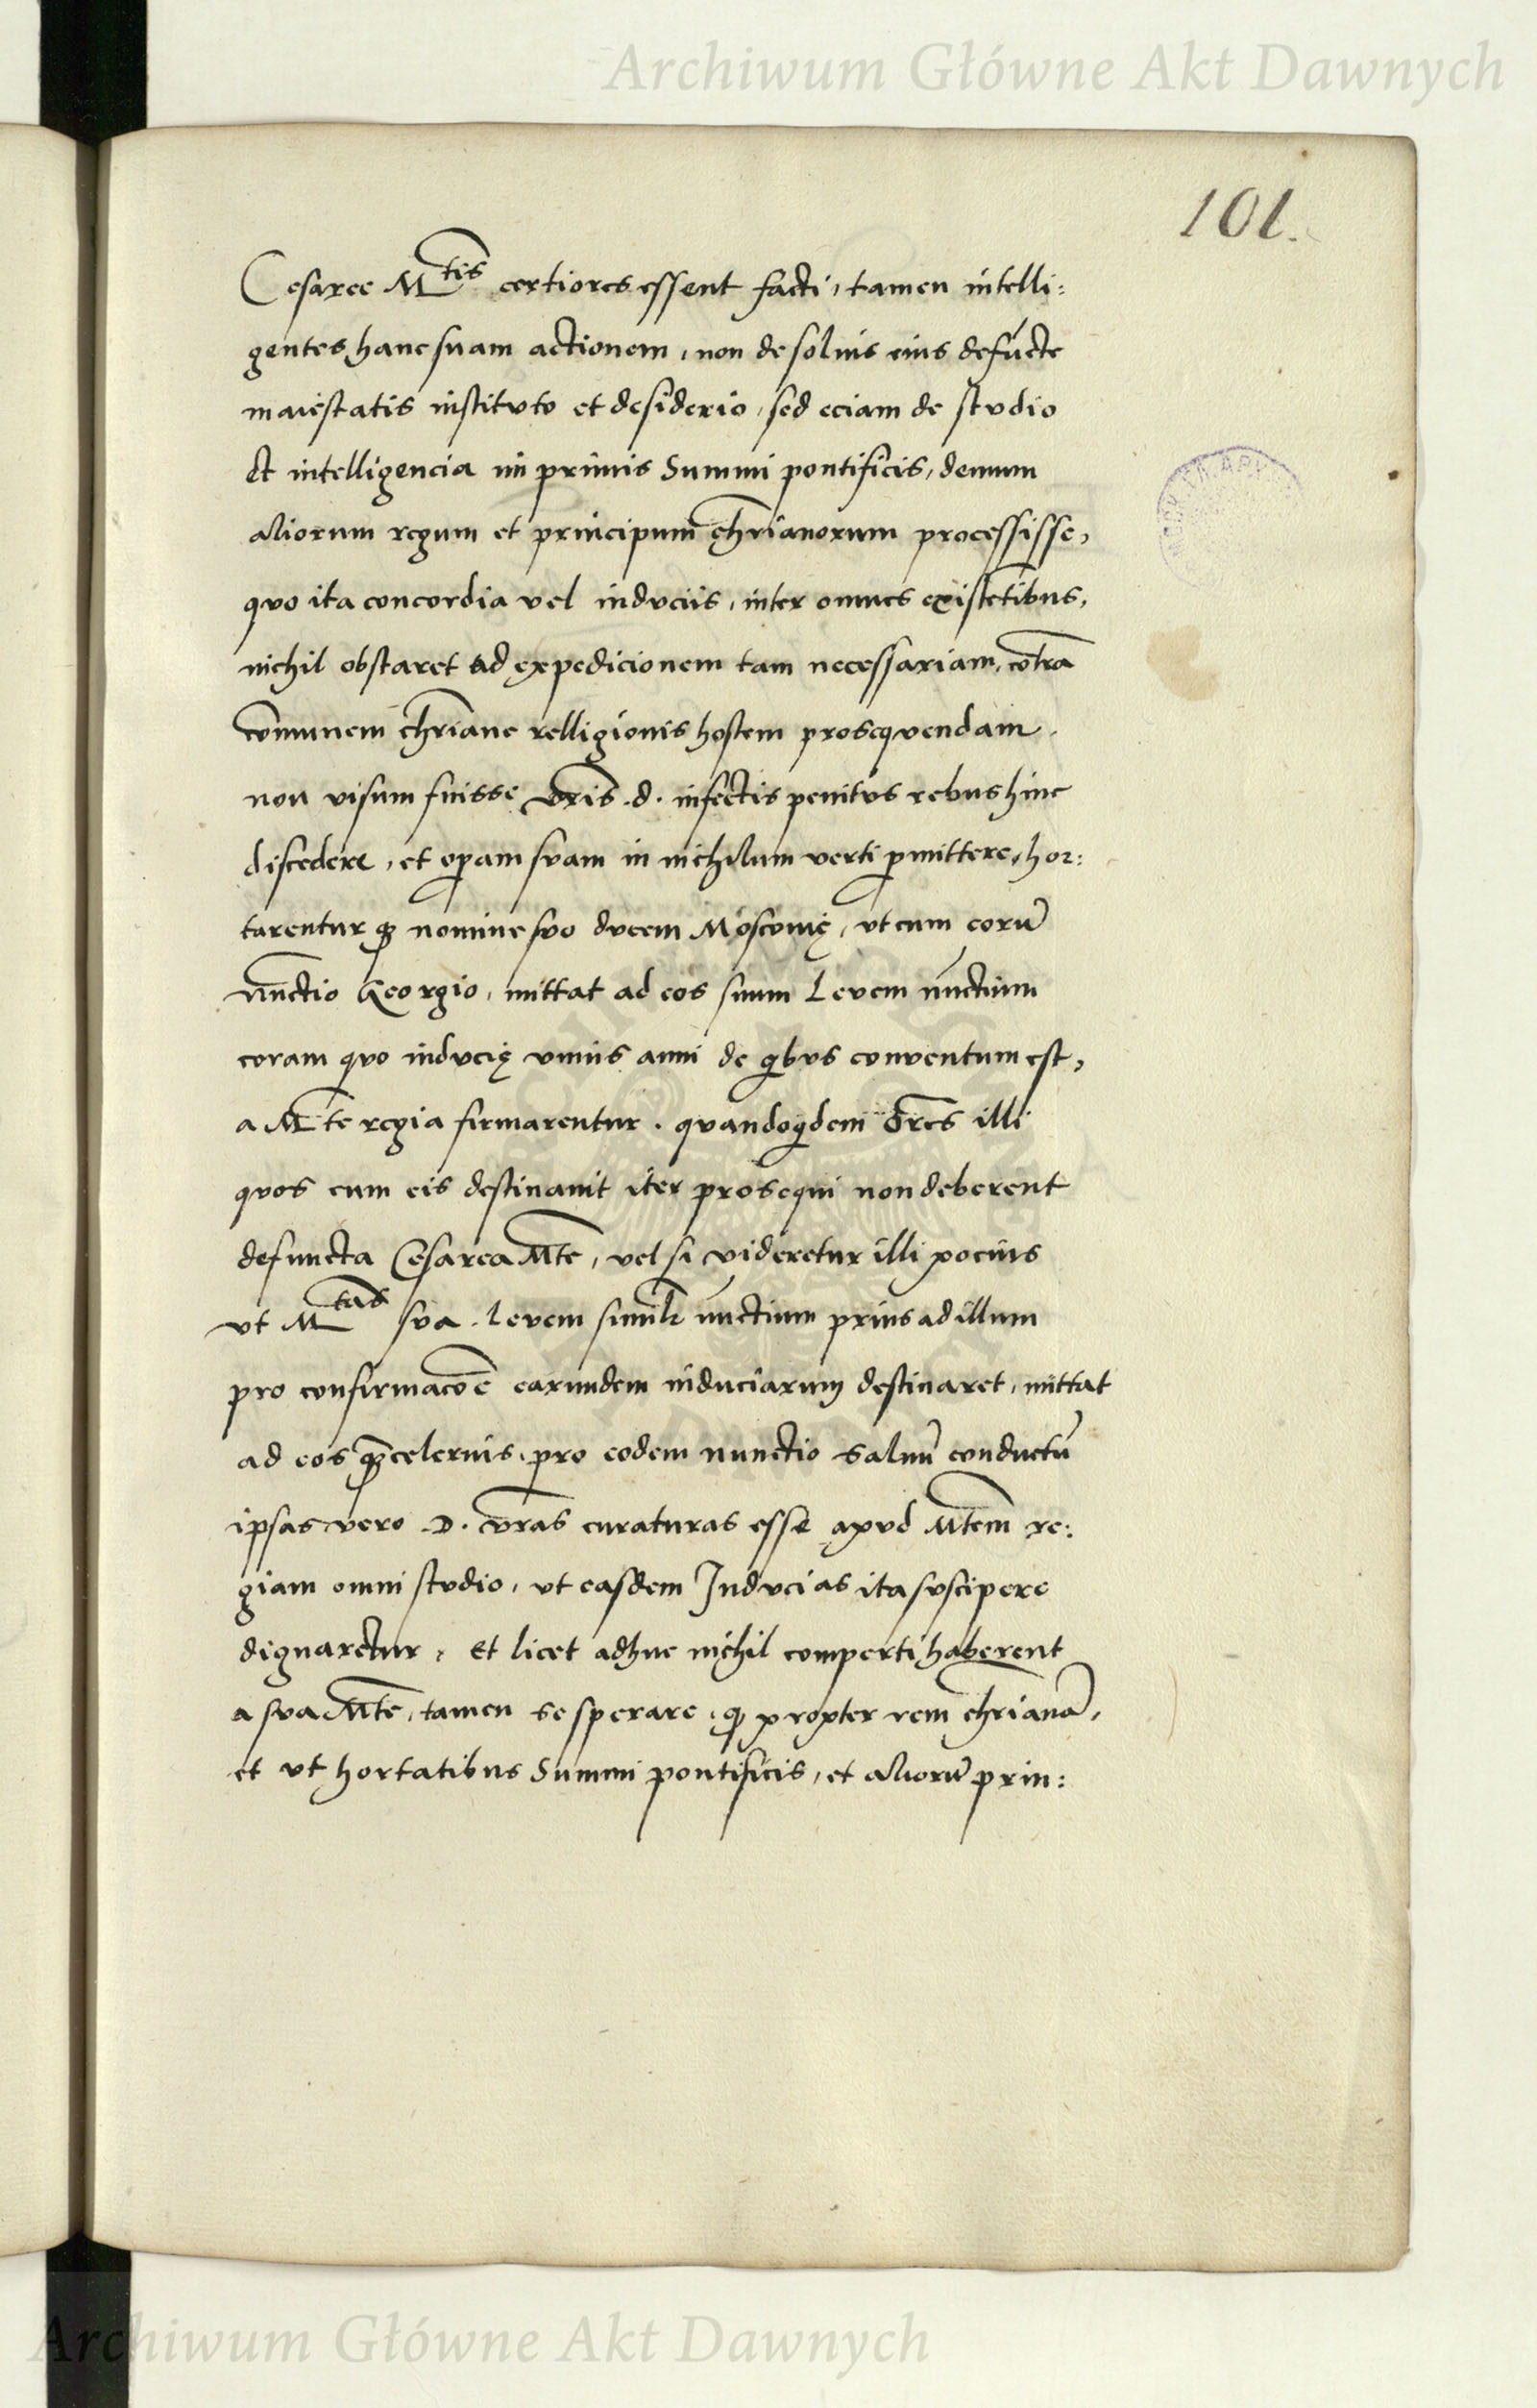 Archiwum Główne Akt Dawnych
101.
Cesaree M^tis certiores essent facti, tamen intelli:
gentes hanc suam actionem, non de solius eius defuncte
maiestatis instituto et desiderio, sed eciam de studio
et intelligencia in primis Summi pontificis, demum
aliorum regum et principum chrianorum processisse,
quo ita concordia vel induciis, inter omnes existētibus,
nichil obstaret ad expedicionem tam necessariam, cōtra
cōmunem chriane relligionis hostem prosequendam.
non visum fuisse vris .d. infectis penitus rebus hinc
discedere, et opam suam in nichilum verti pmittere, hor:
tarentur qz nomine suo ducem Moscovię, ut cum eorū
nūctio Georgio, mittat ad eos suum levem nūctium
coram quo inducię unius anni de qbus conventum est,
a Mte regia firmarentur. quandoqdem Ores illi
quos cum eis destinavit iter prosequi non deberent
defuncta Cesarea Mte, vel si videretur illi pocius
ut M^tas sua. levem similr nūctium prius ad illum
pro confirmacoē earundem induciarum destinaret, mittat
ad eos qz celerius, pro eodem nunctio salvū conductū
ipsas vero .D. vras curaturas esse apud Mtem re:
giam omni studio, ut easdem Inducias ita suscipere
dignaretur, Et licet adhuc nichil comperti haberent
a sua Mte, tamen se sperare, q propter rem chrianā,
et ut hortatibus Summi pontificis, et aliorū prin:
Archiwum Główne Akt Dawnych